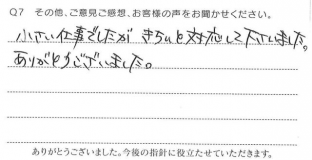 Q7 その他、ご意見ご感想、お客様の声をお聞かせください。
小さい仕事でしたが きちんと対応して下さいました。
ありがとうございました。
ありがとうございました。今後の指針に役立たせていただきます。